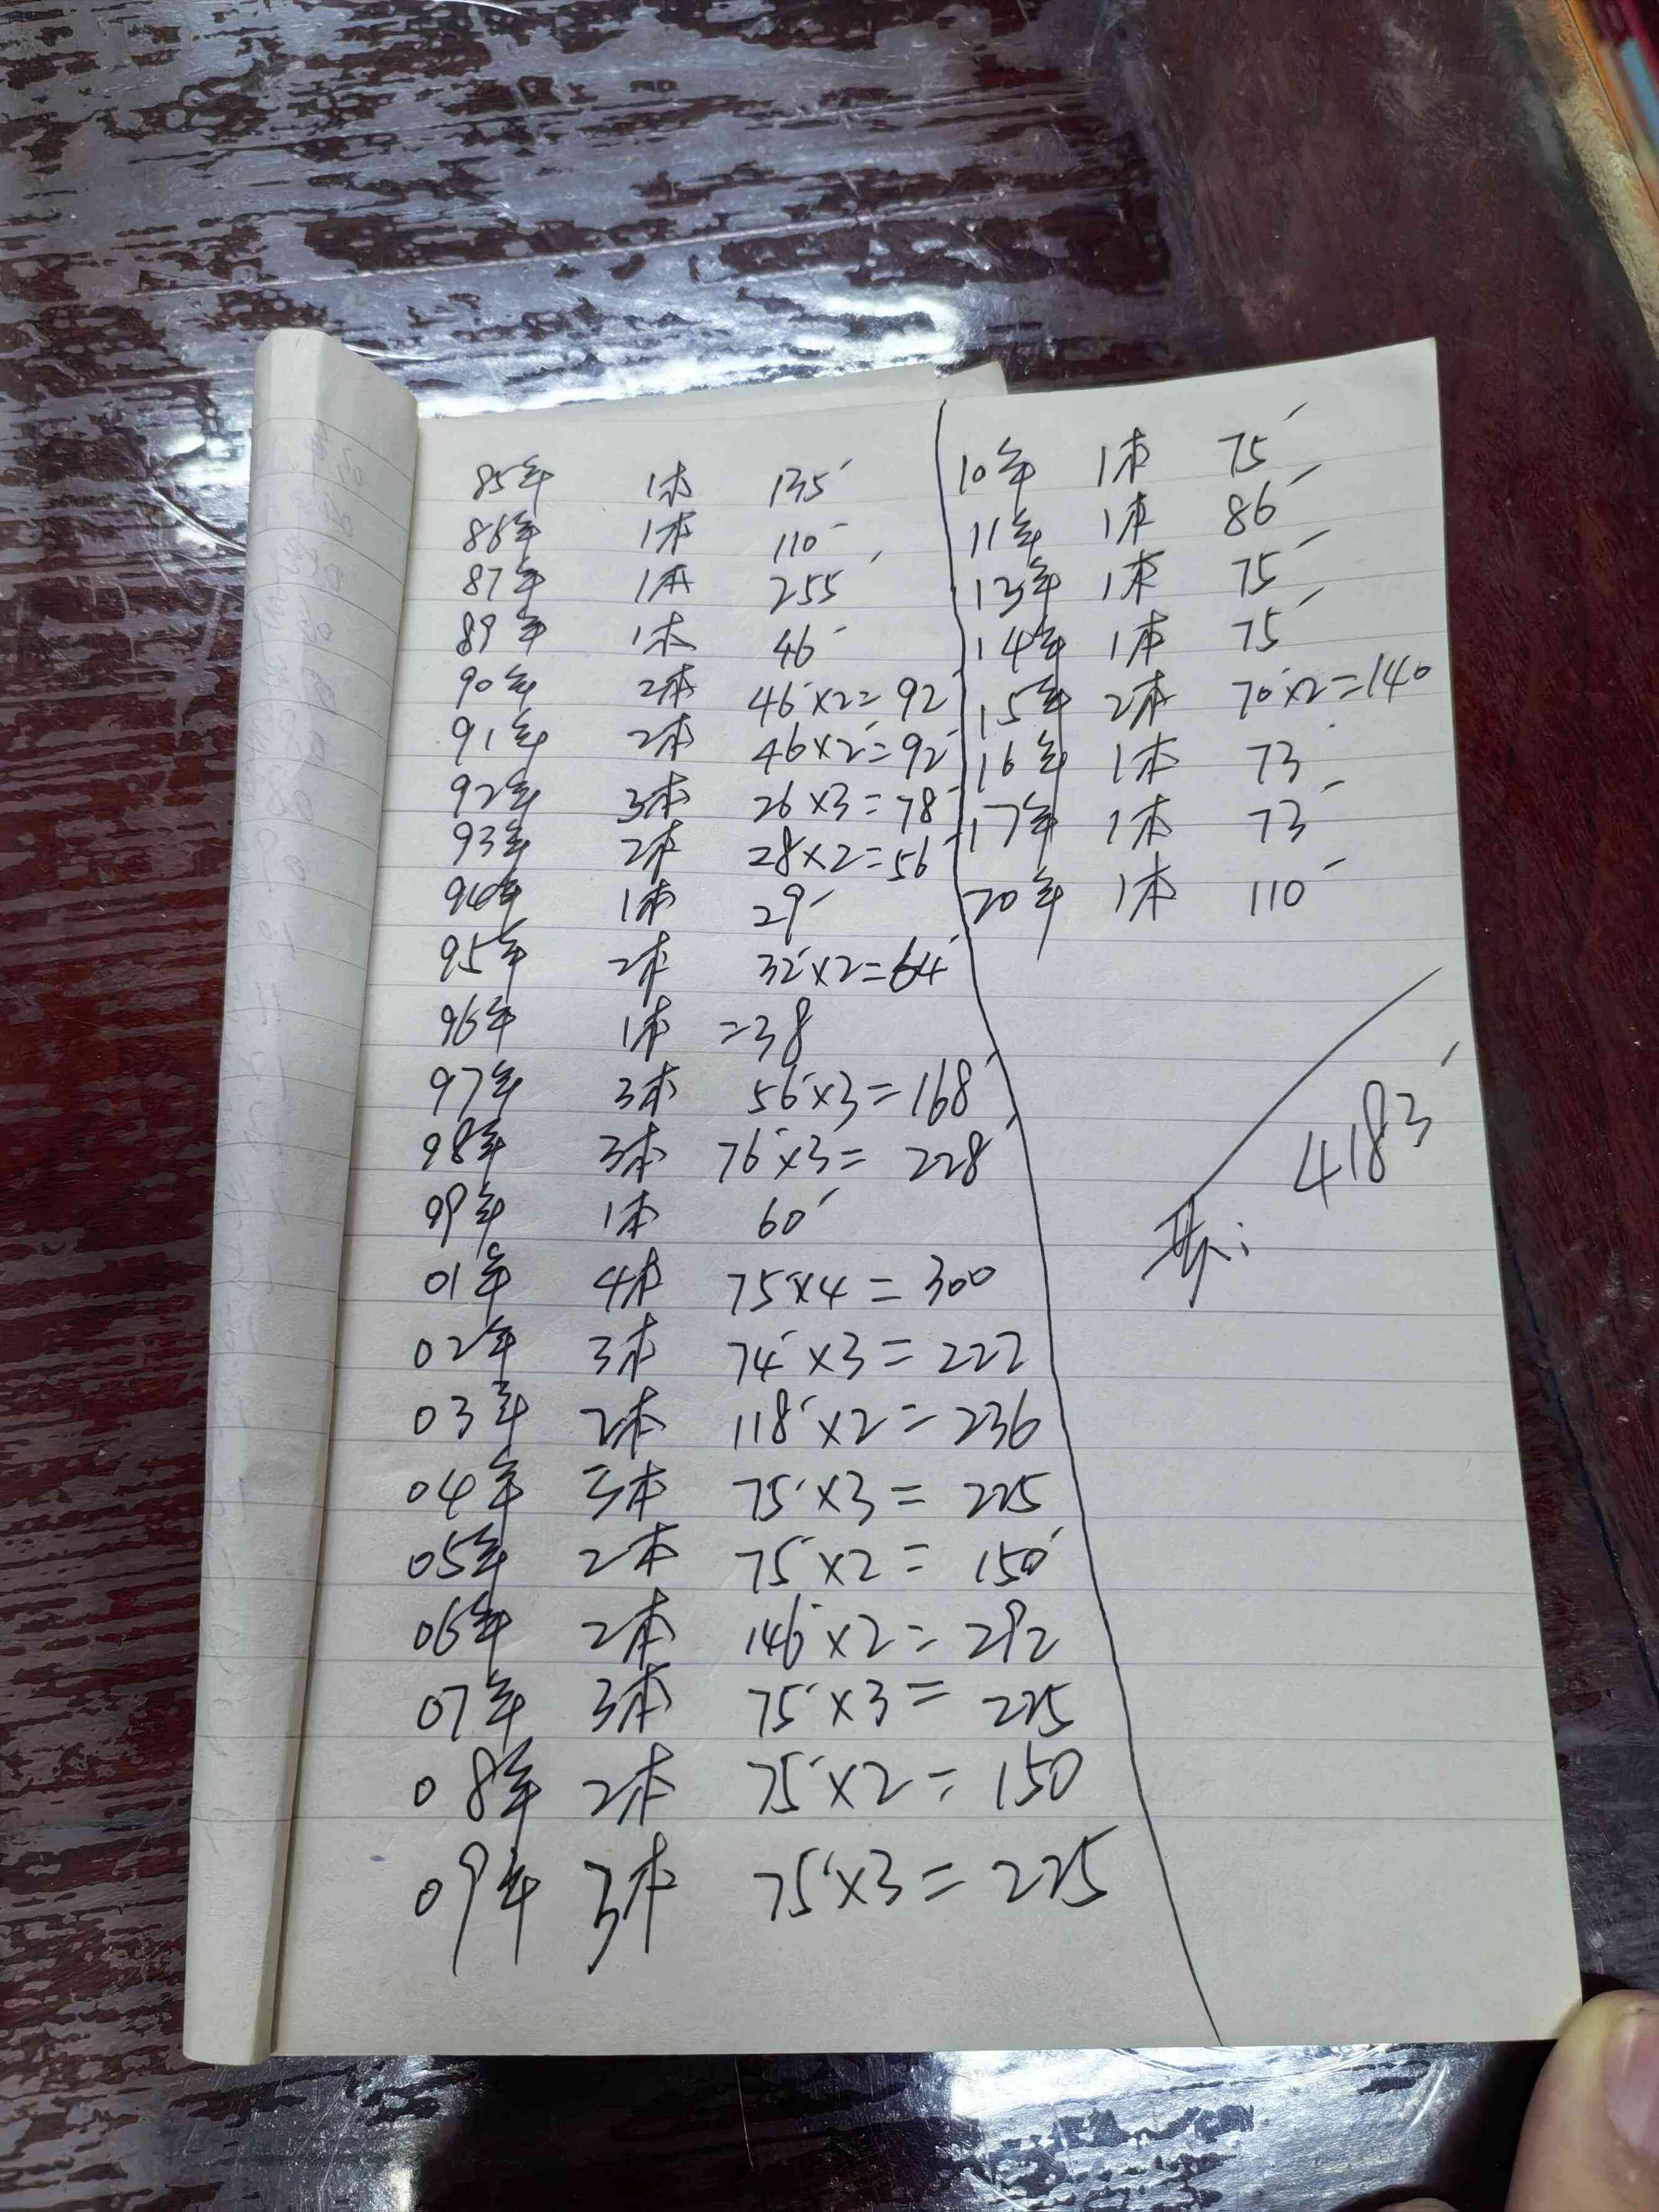 85年 1本 135
86年 1本 110
87年 1本 255
89年 1本 46
90年 2本 46×2=92
91年 2本 46×2=92
92年 3本 26×3=78
93年 2本 28×2=56
94年 1本 29
95年 2本 32×2=64
96年 1本 =38
97年 3本 56×3=168
98年 3本 76×3=228
99年 1本 60
01年 4本 75×4=300
02年 3本 74×3=222
03年 2本 118×2=236
04年 三本 75×3=225
05年 2本 75×2=150
06年 2本 146×2=292
07年 3本 75×3=225
08年 2本 75×2=150
09年 3本 75×3=225
10年 1本 75
11年 1本 86
13年 1本 75
14年 1本 75
15年 2本 70×2=140
16年 1本 73
17年 1本 73
20年 1本 110
共: 4183